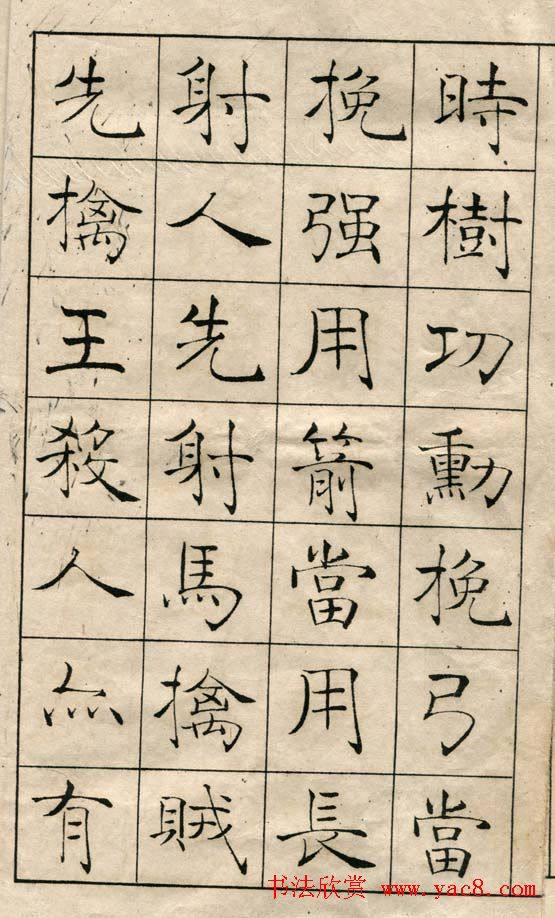 時樹功勳挽弓當
挽强用箭當用長
射人先射馬擒賊
先擒王殺人亦有
书法欣赏 www.yac8.com